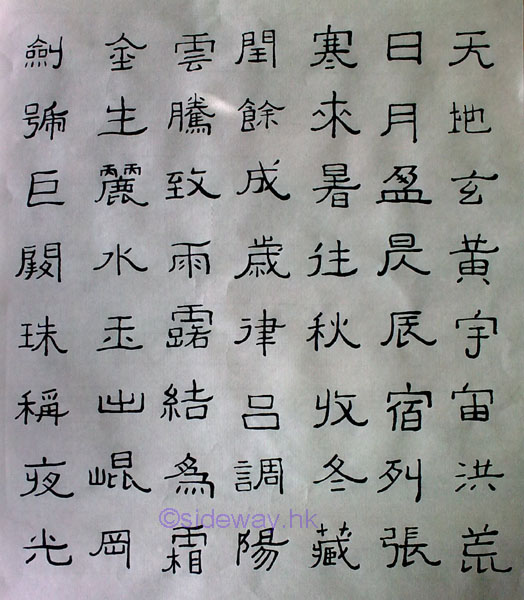 天地玄黃宇宙洪荒
日月盈昃辰宿列張
寒來暑往秋收冬藏
閏餘成歲律呂調陽
雲騰致雨露結爲霜
金生麗水玉出崐岡
劍號巨闕珠稱夜光
©sideway.hk